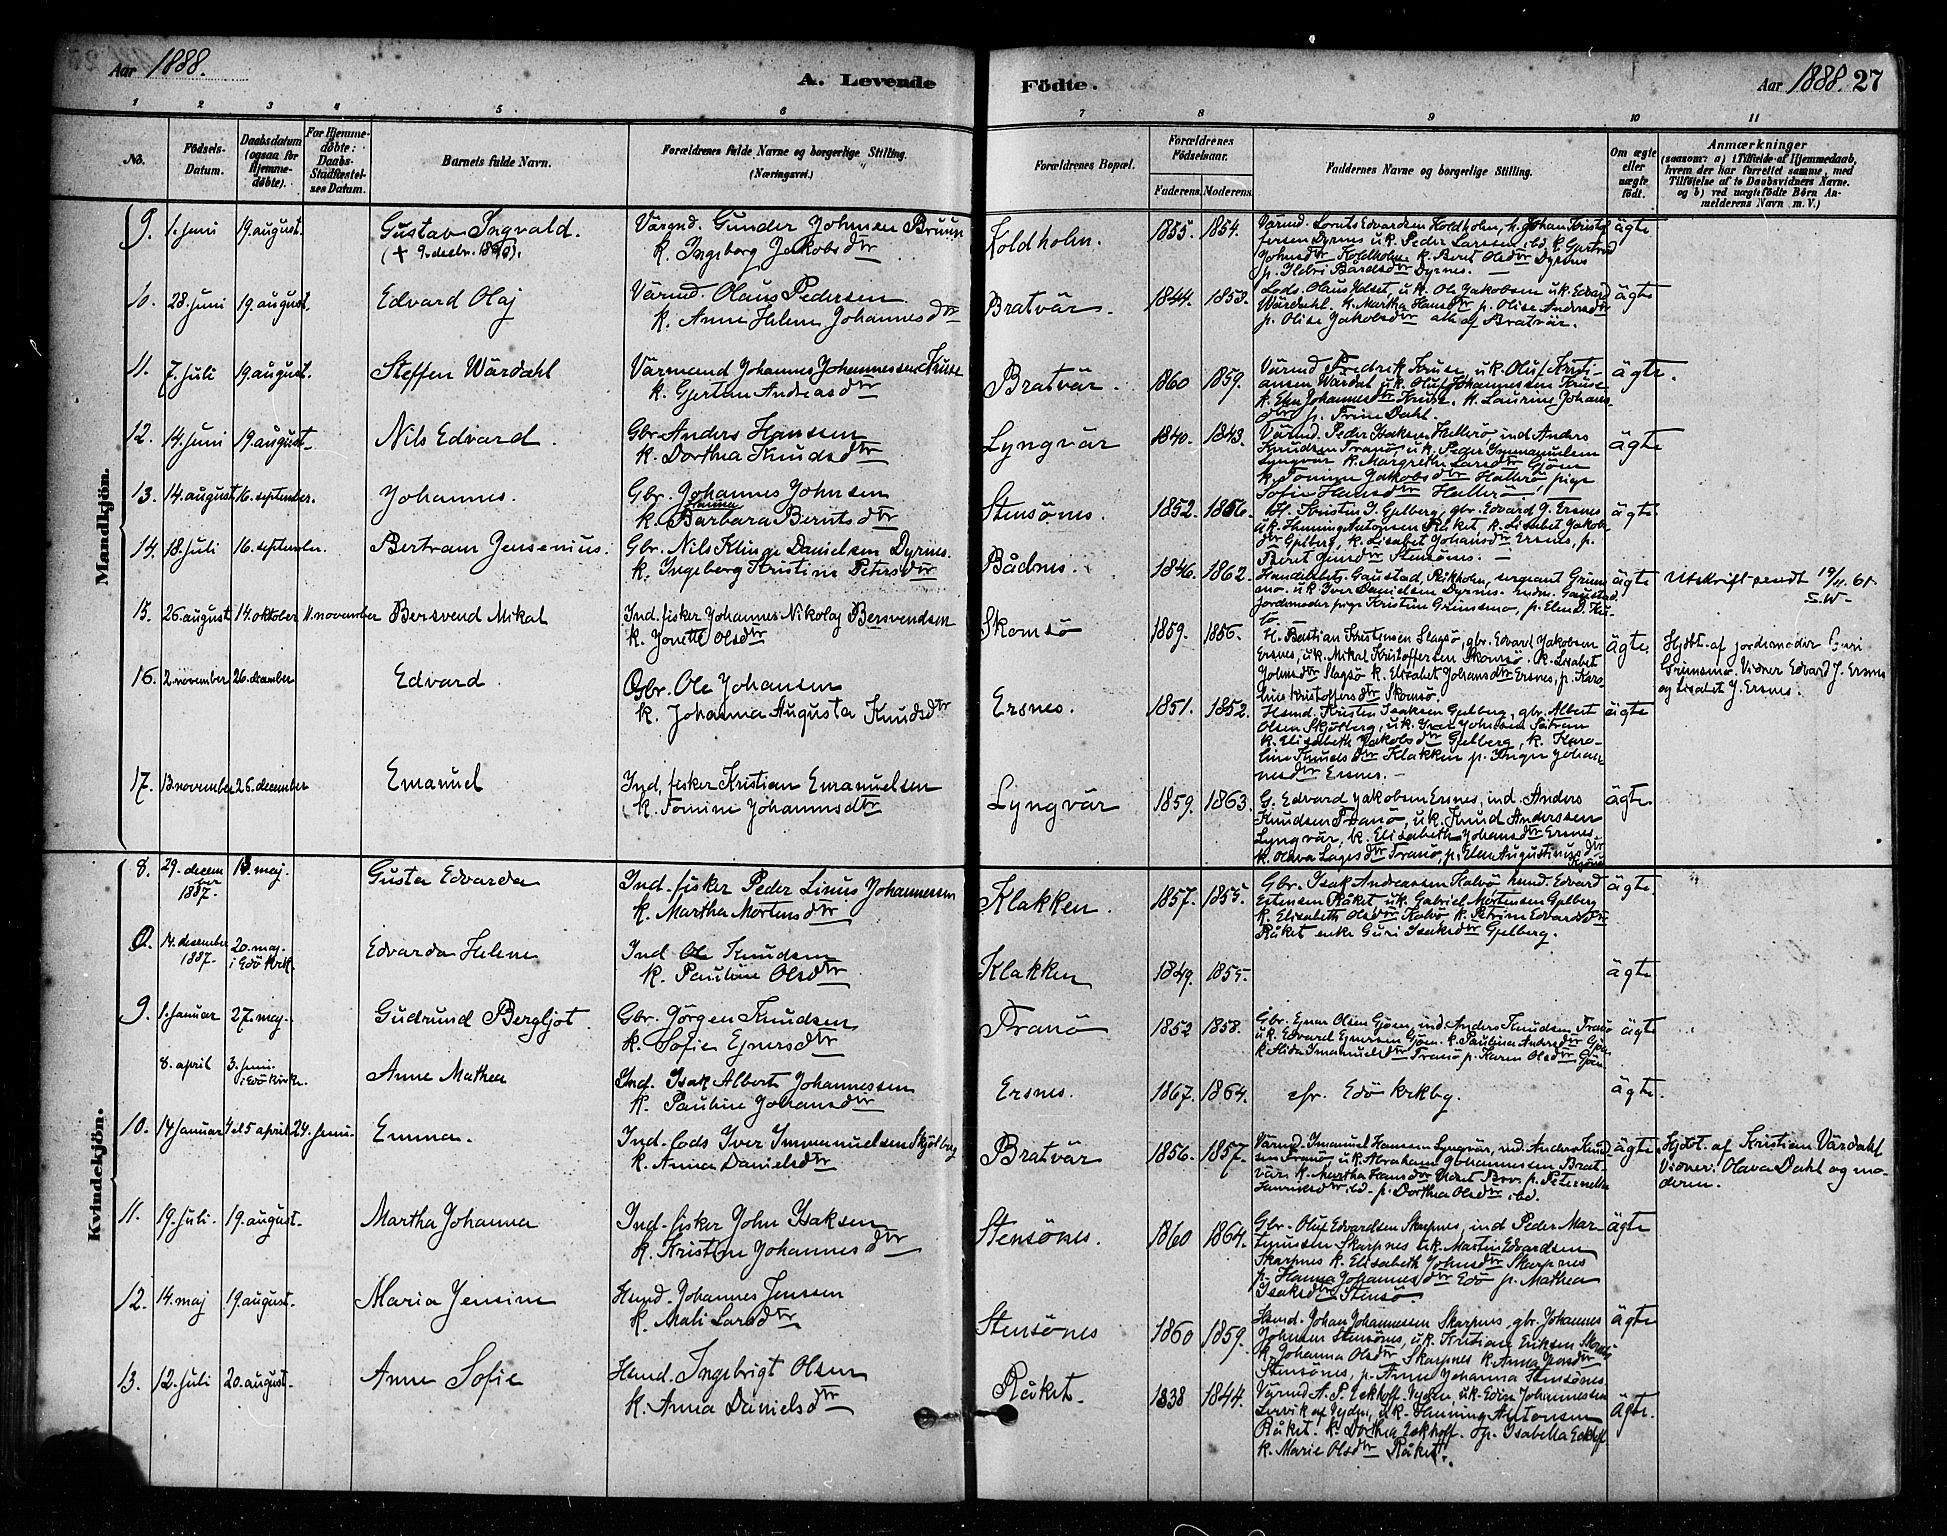 Aar 1888.
A. Levende Födte.
Aar 1888. 27
1 2 3 4 5 6 7 8 9 10 11
No.
Födsels-Datum.
Daabsdatum (ogsaa for Hjemme-döbte).
For Hjemme-döbte: Daabs-Stadfæstel-ses Datum.
Barnets fulde Navn.
Forældrenes fulde Navne og borgerlige Stilling. (Næringsvei.)
Forældrenes Bopæl.
Forældrenes Födselsaar.
Faderens. Moderens.
Faddernes Navne og borgerlige Stilling.
Om ægte eller uægte födt.
Anmærkninger
(saasom: a) i Tilfælde af Hjemmedaab,
hvem der har forrettet samme, med
Tilföielse af to Daabsvidners Navne.
og b) ved uægtefödte Börn An-
melderens Navn m. V.)
Mandkjön.
9. 1. juni 19. august. Gustav Ingvald. Värgnd. Gunder Johnsen Bruun
k. Ingeborg Jakobsdtr
Koldholm. 1855. 1854. Värmd. Lorents Edvardsen Koldholm, h. Johan Kristof
fersen Dyrnes u.k. Peder Larssen ibd. k. Gurtrud
Johnsdtr Koldholm. k. Beret Olsdtr Dyrnes
p. Ildbri Bårdsdtr Dyrnes. ägte
10. 28. juni 19 august. Edvard Olaj Värmd. Olaus Pedersen
k. Anne Helene Johannesdtr
Bratvär. 1844. 1853. Lods. Olaus Udset, u.k. Ole Jakobsen u.k. Edvard
Wärdahl. k. Martha Hansdtr p. Olise Andersdtr
p. Olise Jakobsdtr alle af Bratvär. ägte
11. 7. juli 19. august. Steffen Wärdahl Värmand Johannes Johannessen Kruse
k. Gjertine Andreasdtr
Bratvär. 1860 1859. Värmd Fredrik Kruse, u.k. Oluf Kristi-
ansen Wärdal u.k. Oluf Johannessen Kruse
k. Elen Johannesdtr Kruse. k. Laurine Johans
dtr p. Trine Dahl. ägte.
12. 14. juni 19. august. Nils Edvard. Gbr Anders Hanssen
k. Dorthea Knudsdtr
Lyngvär 1840. 1843. Värmd. Peder Isaksen Hallerö ind Anders
Knudsen Tranö, u.k. Peder Immanuelsen
Lyngvär k. Margrethe Larsdtr Gjöen
k. Tomine Jakobsdtr Hallerö, pige
Sofie Hansdtr Hallerö. ägte
13. 14. august 16. september. Johannes. Gbr. Johannes Johnsen
k. Barbara Berntsdtr
Stensönes. 1852. 1856. Kristen I. Gjelberg, gbr. Edvard J. Ersnes
u.k. Henning Antonsen Råket k. Lisabet Jakobs
dtr Gjelberg, k. Lisabet Johansdtr Ersnes, p.
Beret Jensdtr Stensönes. ägte.
14. 18. juli 16. september. Bertram Jensenius. Gbr. Nils Klinge Danielsen Dyrnes.
k. Ingeborg Kristine Petersdtr
Bådnes. 1846. 1862. Handelsbetj. Gaustad, Rikholm, sergeant Grims
mo. u.k Iver Danielsen Dyrnes. Gaustad
jordemoder pige Kristin Grimsmo, p. ägte Utskrift sendt 19/11 61
S.W-
15. 26. august 14. oktober 11. november Bersvend Mikal Ind. fisker Johannes Nikolaj Bersvendsen
k. Jonette Olsdtr
Skomsö 1859. 1856. H. Bastian Kristensen Slagsö, gbr. Edvard Jakobsen
Ersnes, u.k. Mikal Kristoffersen Skomsö. k. Lisabet
Johnsdtr Slagsö k. Elisabet Johansdtr Ersnes, p. Karo-
line Kristoffersdtr Skomsö. ägte. Hjdbt. af jordemoder Guri
Grimsmo. Vidner Edvard J. Ersnes
og Lisabet J. Ersnes.
16. 2. november 26. december Edvard. Gbr. Ole Johansen
k. Johanna Augusta Knudsdtr
Ersnes. 1851. 1852. Hsmd. Kristen Isaksen Gjelberg, gbr. Albert
Olsen Skjölberg, u.k. Iver Johnsen Sätran
k. Elisabeth Jakobsdtr Gjelberg, k. Karo-
line Knudsdtr Klakken p. Inger Johan-
nesdtr Ersnes. ägte
17. 13. november 26. december Emanuel Ind. fisker Kristian Emanuelsen
k. Tomine Johannesdtr
Lyngvär 1859. 1863. G. Edvard Jakobsen Ersnes, ind. Anders
Knudsen Tranö, u.k. Knud Anderssen
Lyngvär, k. Elisabeth Johansdtr Ersnes.
k. Olava Lagesdtr Tranö, p. Elen Augustinusdtr ägte.
Kvindekjön.
8. 29. decem
ber
1887. 13. maj. Gusta Edvarda Ind. fisker Peder Linus Johannessen
k. Martha Mortensdtr
Klakken. 1857. 1855. Gbr. Isak Andreassen Kalvö, hsmd. Edvard
Estensen Råket u.k. Gabriel Mortensen Gjelberg
k. Elisabeth Olsdtr Kalvö k. Petrine Edvardsdtr
Råket enke Guri Isaksdtr Gjelberg. ägte.
14. desember
1887. 20. maj.
i Edö kirk. Edvarda Helene Ind Ole Knudsen
k. Pauline Olsdtr
Klakken 1849. 1855. ägte
9. 1. januar 27. maj. Gudrund Bergljot. Gbr. Jörgen Knudsen
k. Sofie Ejnersdtr
Tranö 1852 1858. Gbr. Ejnar Olsen Gjöen, ind Anders Knudsen Tranö
u.k. Edvard Ejnersen Gjöen. k. Paulina Andresdtr Gjöen
k. Alida Imanuelsdtr Tranö p. Karen Olsdtr Gjöen. ägte
8. april 3. juni
i Edö kirke. Anne Mathea Ind. Isak Albert Johannessen
k. Pauline Johansdtr
Ersnes. 1867. 1864. cfr. Edö krkbg. ägte.
10. 14 januar 4 el 5 april 24. juni. Emma. Ind. lods Iver Immanuelsen Skjölberg
k. Anna Danielsdtr
Bratvär 1856. 1857. Värmd. Imanuel Hansen Lyngvär, ind. Anders Knud
sen Tranö u.k. Abraham Johannessen Brat-
vär k. Martha Hansdtr p. Peternella
Henriksdtr ibd. p. Dorthea Olsdtr ibd. ägte. Hjdbt. af Kristian Värdahl
Vidner. Olava Dahl og mo-
deren.
11. 19. juli. 19. august. Martha Johanna Ind. fisker John Isaksen
k. Kristine Johannesdtr
Stensönes. 1860 1864. Gbr. Oluf Edvardsen Skarpnes, ind Peder Mar-
tinussen Skarpnes u.k. Martin Edvardsen
Skarpnes k. Elisabeth Johnsdtr Skarpnes
p. Hanna Johannesdtr Edö p. Mathea
Isaksdtr Stensö. ägte
12. 14. maj 19. august. Maria Jensine Hsmd. Johannes Jenssen
k. Mali Larsdtr
Stensönes 1860 1859. Hsmd. Johan Johannessen Skarpnes, gbr. Johannes
Johnsen Stensönes, u.k. Kristian Eriksen
k. Johanna Olsdtr Skarpnes k. Anna Jonsdtr
Stensönes, p. Anne Johanna Stensönes. ägte
13. 12. juli 20. august. Anne Sofie Hsmd. Ingebrigt Olsen
k. Anna Danielsdtr
Råket. 1838 1844. Värmd. A. P. Eckhoff, Vejden, u.k. Edin Johannessen
Lervik af Vejden, u.k. Henning Antonsen
Råket. k. Dorthea Eckhoff. p. Isabella Eckhoff
k. Marie Olsdtr Råket. ägte.